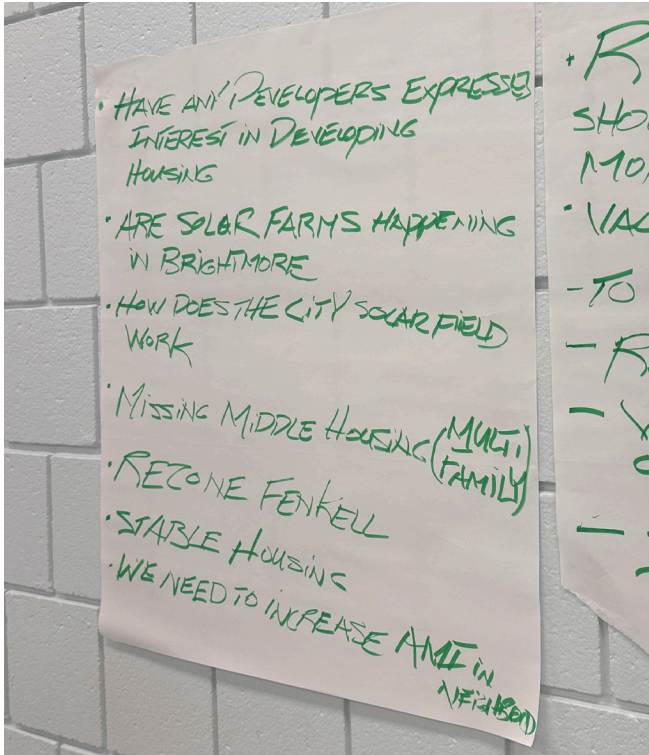 • HAVE ANY DEVELOPERS EXPRESSED
INTEREST IN DEVELOPING
HOUSING
• ARE SOLAR FARMS HAPPENING
IN BRIGHTMORE
• HOW DOES THE CITY SOLAR FIELD
WORK
• MISSING MIDDLE HOUSING (MULTI
FAMILY)
• REZONE FENKELL
• STABLE HOUSING
• WE NEED TO INCREASE AMI IN
• R
SHO
MO
• VAC
- TO
- R